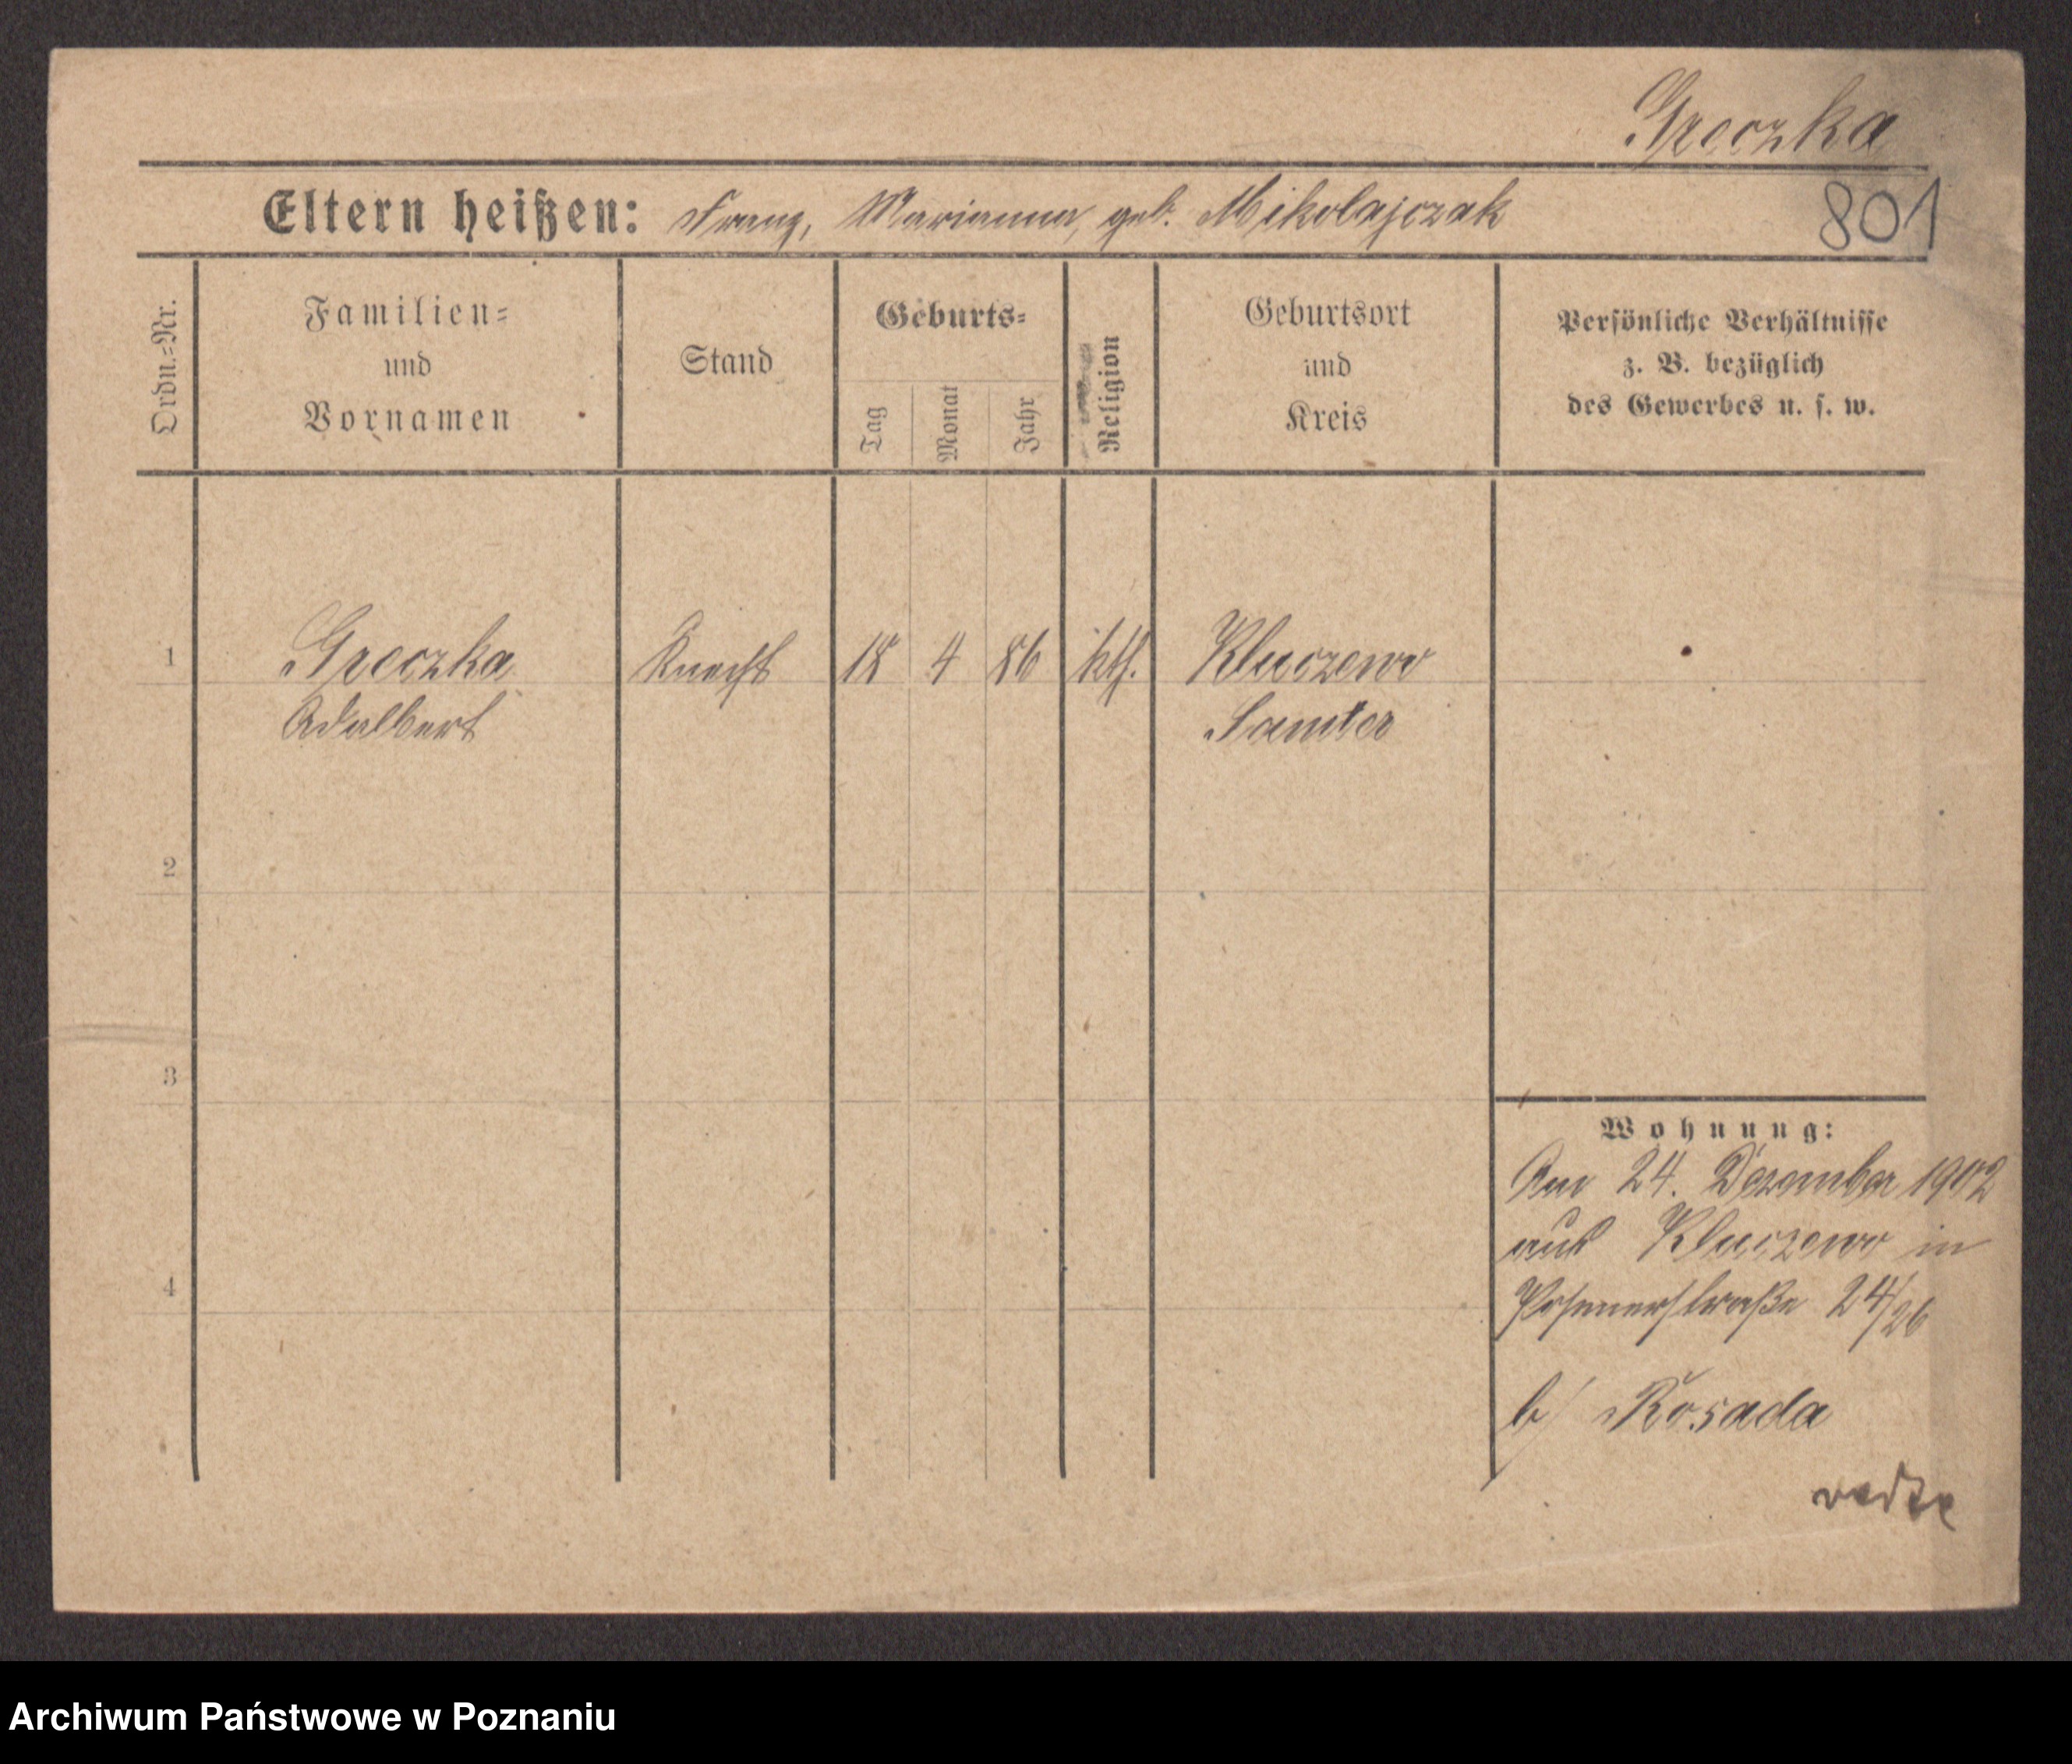 Greczka
Eltern heißen: Franz, Marianna, geb. Mikolajczak
801
Ordn.=Nr.
Familien=
und
Vornamen
Stand
Geburts=
Tag
Monat
Jahr
Religion
Geburtsort
und
Kreis
Persönliche Verhältnisse
z. B. bezüglich
des Gewerbes u. s. w.
1 Greczka Knecht 18 4 86 kth. Kluczewo
Adalbert Samter
2
3
4
Wohnung:
Am 24. Dezember 1902
aus Kluczewo in
Posenerstraße 24/26
b/ Rosada
Archiwum Państwowe w Poznaniu